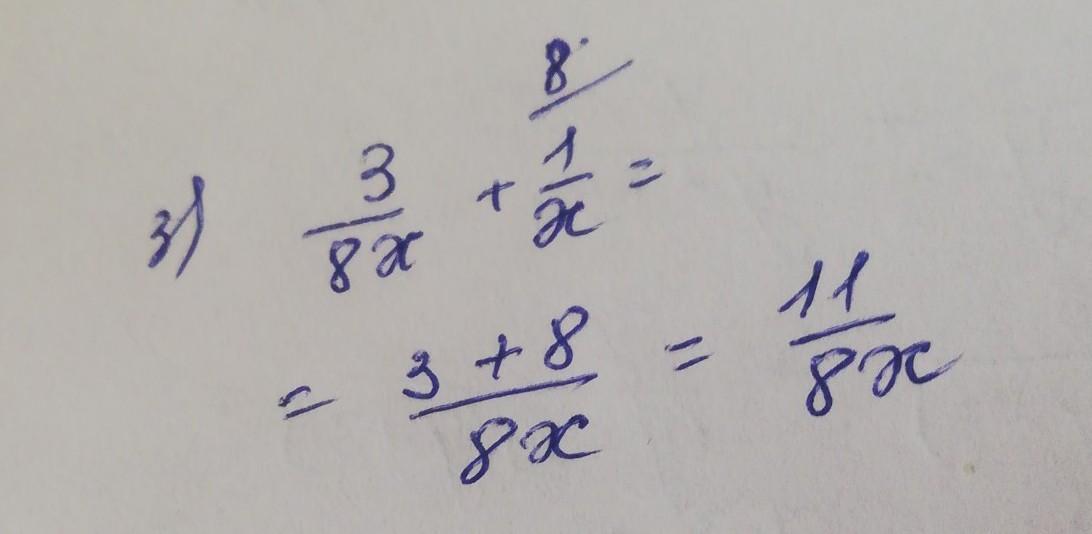 8
3) 3/8x + 1/x =
= 3 + 8/8x = 11/8x